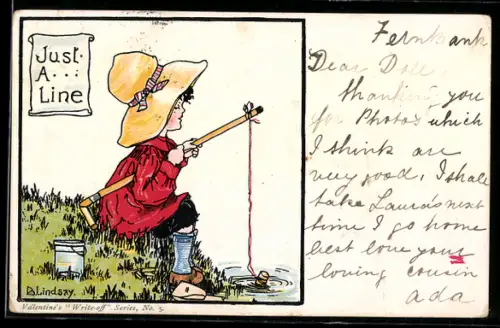 Just
A...
Line
B Lindsay.
Valentine's "Write-off" Series, No. 2
Fernbank
Dear Doll,
thanking you
for Photos which
I think are
very good, I shall
take Laura's next
time I go home
best love your
loving cousin
Ada